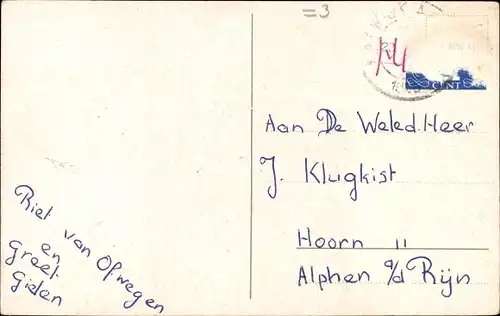 =3
CENT
Aan De Weled. Heer
J. Klugkist
Hoorn 11
Alphen a/d Rijn
Riet van Ofwegen
en
Greet
Gielen